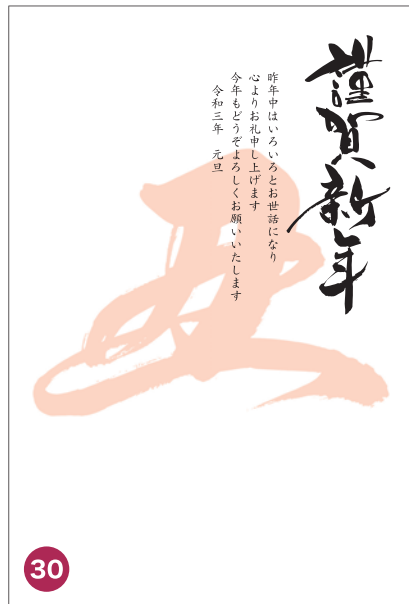 謹賀新年
昨年中はいろいろとお世話になり
心よりお礼申し上げます
今年もどうぞよろしくお願いいたします
令和三年　元旦
丑
30